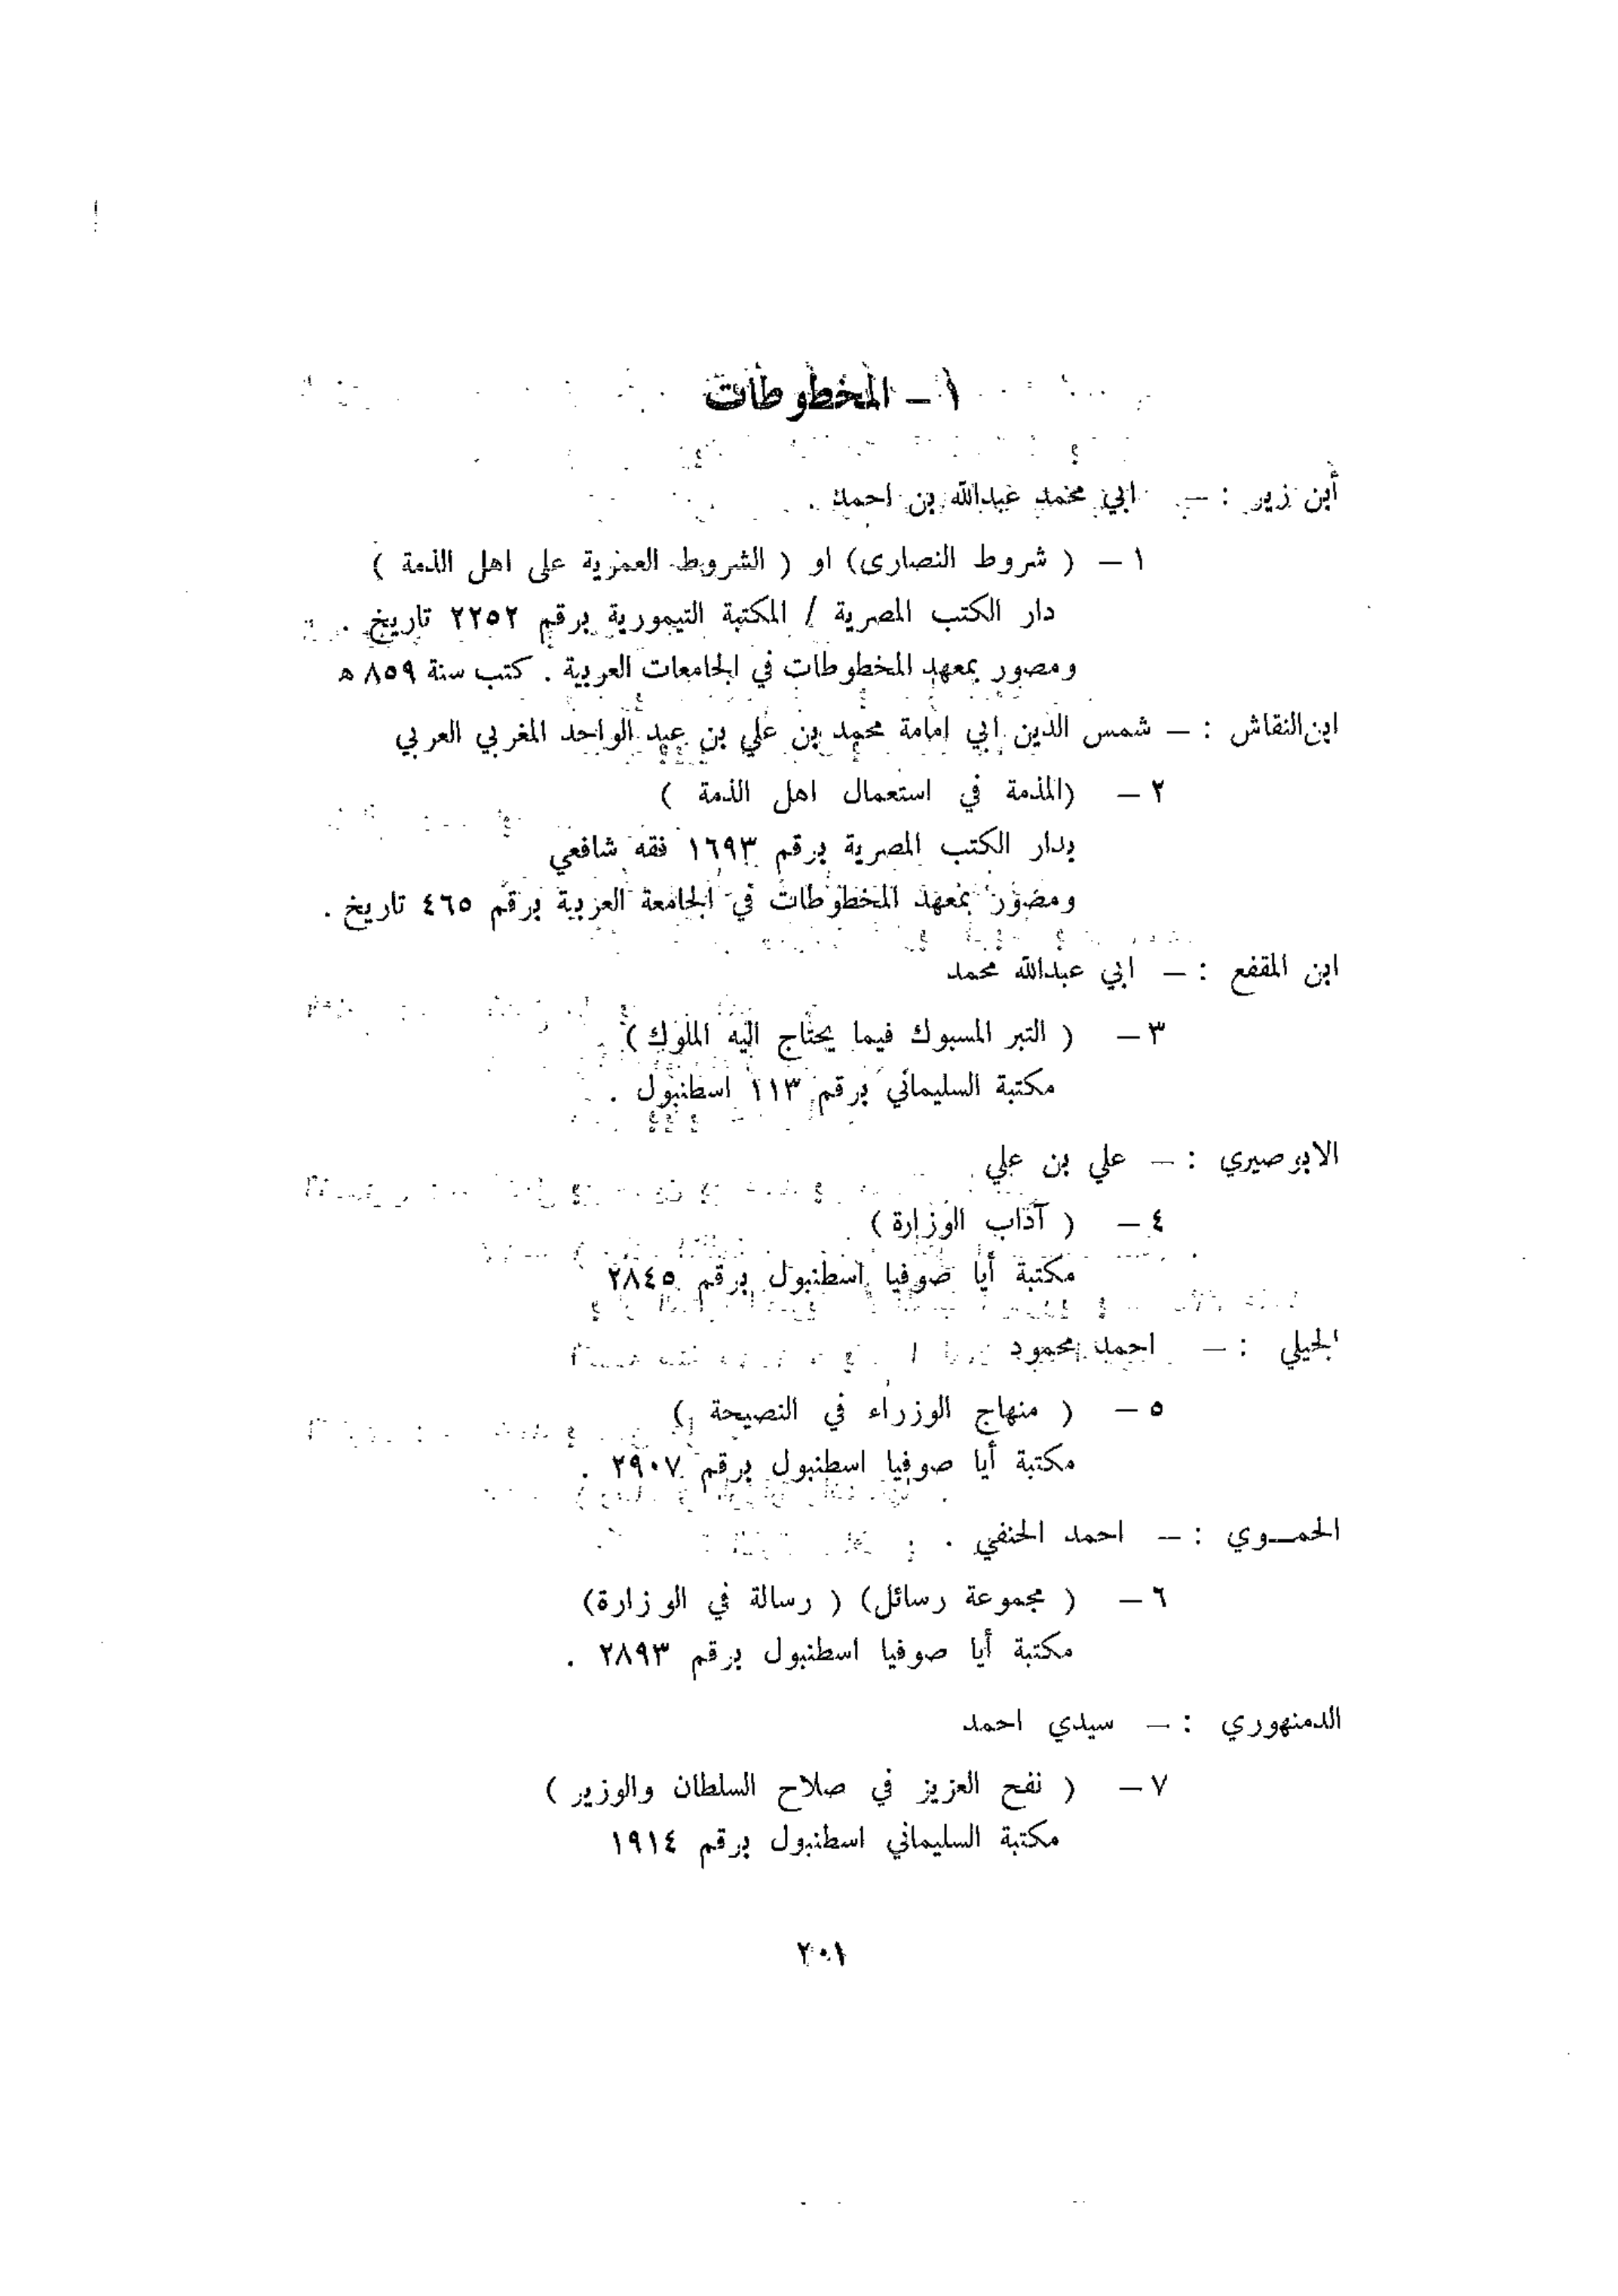 ١ – المخطوطات
أبن زير : – ابي محمد عبدالله بن احمد .
١ – ( شروط النصارى) او ( الشروط العمرية على اهل الذمة )
دار الكتب المصرية / المكتبة التيمورية برقم ٢٢٥٢ تاريخ .
ومصور بمعهد المخطوطات في الجامعات العربية . كتب سنة ٨٥٩ ه
ابن النقاش : – شمس الدين ابي امامة محمد بن علي بن عبد الواحد المغربي العربي
٢ – (المذمة في استعمال اهل الذمة )
بدار الكتب المصرية برقم ١٦٩٣ فقه شافعي
ومصور بمعهد المخطوطات في الجامعة العربية برقم ٤٦٥ تاريخ .
ابن المقفع : – ابي عبدالله محمد
٣ – ( التبر المسبوك فيما يحتاج اليه الملوك ) .
مكتبة السليماني برقم ١١٣ اسطنبول .
الابرصيري : – علي بن علي
٤ – ( آداب الوزارة )
مكتبة أيا صوفيا اسطنبول برقم ٢٨٤٥
الجيلي : – احمد محمود
٥ – ( منهاج الوزراء في النصيحة )
مكتبة أيا صوفيا اسطنبول برقم ٢٩٠٧ .
الحمــوي : – احمد الحنفي .
٦ – ( مجموعة رسائل) ( رسالة في الوزارة)
مكتبة أيا صوفيا اسطنبول برقم ٢٨٩٣ .
الدمنهوري : – سيدي احمد
٧ – ( نفح العزيز في صلاح السلطان والوزير )
مكتبة السليماني اسطنبول برقم ١٩١٤
٢٠١